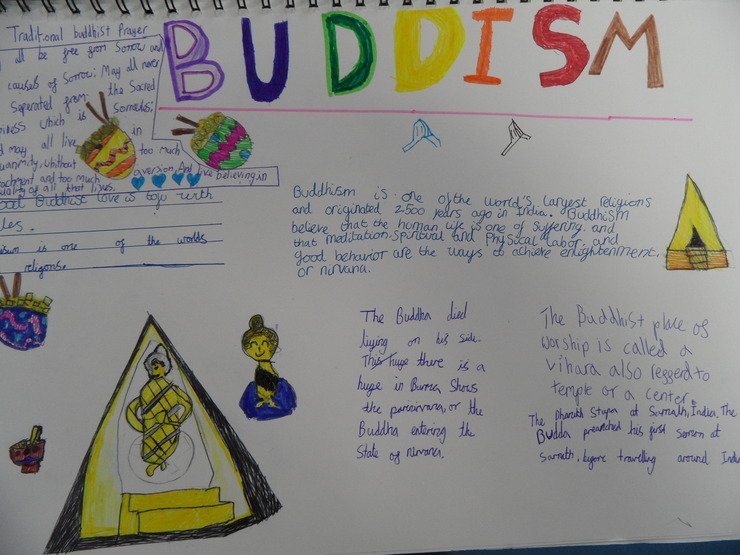 BUDDISM
Traditional buddhist Prayer
all be free from Sorrow and
causes of Sorrow: May all never
Seperated from the Sacred
which is Sorrowles:
may all live in
without too much
and too much aversion, And live believing in
of all that lives.
Buddhist love is tofu with
is one of the worlds
religions.
Buddhism is one of the World's Largest religions
and originated 2500 years ago in India. Buddhism
believe that the human Life is one of suffering, and
that meditation, Spiritual and Physical Labor, and
good behavior are the ways to achieve enlightenment,
or nirvana.
The Buddha died
liying on his side.
This huge there is a
huge in Burma Shows
the parinirvana, or the
Buddha entering the
State of nirvana.
The Buddhist place of
worship is called a
vihara also reggerd to
temple or a center.
The Stupa at India, The
Budda preanched his first sermon at
Sarnath, before travelling around India